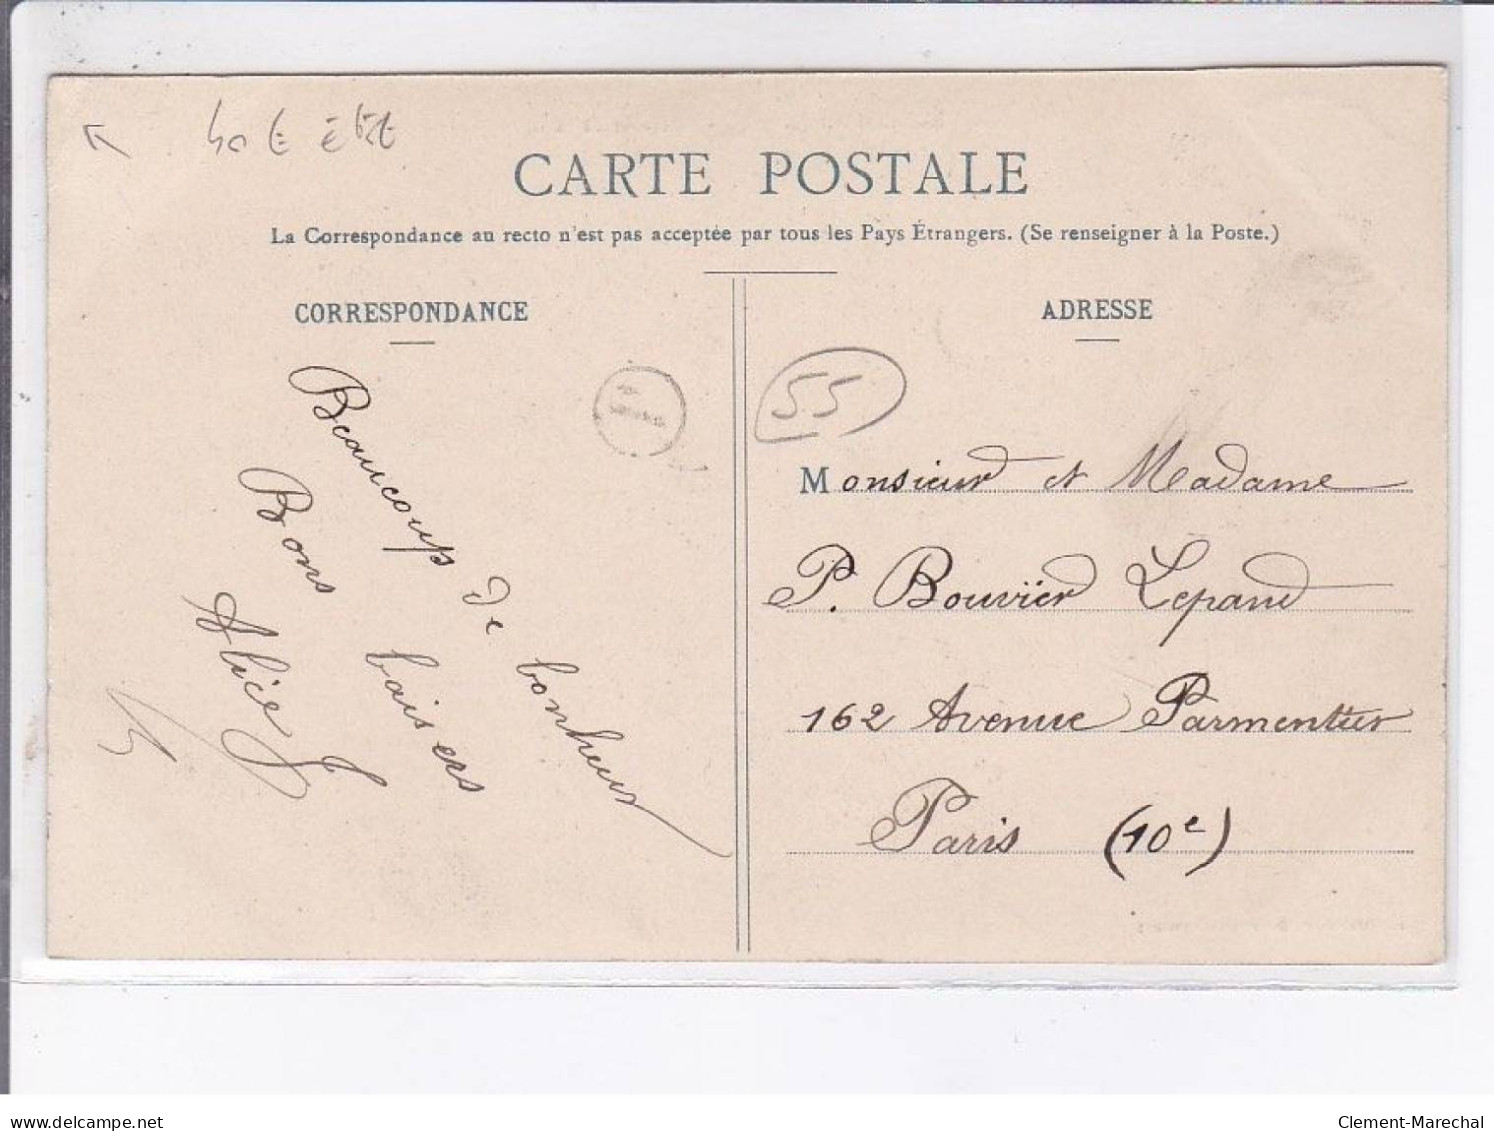 CARTE POSTALE
La Correspondance au recto n'est pas acceptée par tous les Pays Étrangers. (Se renseigner à la Poste.)
CORRESPONDANCE
Beaucoup de bonheur
Bons baisers
Alice
ADRESSE
55
Monsieur et Madame
P. Bouvïer Lepand
162 Avenue Parmentier
Paris (10e)
delcampe.net
Clement-Marechal